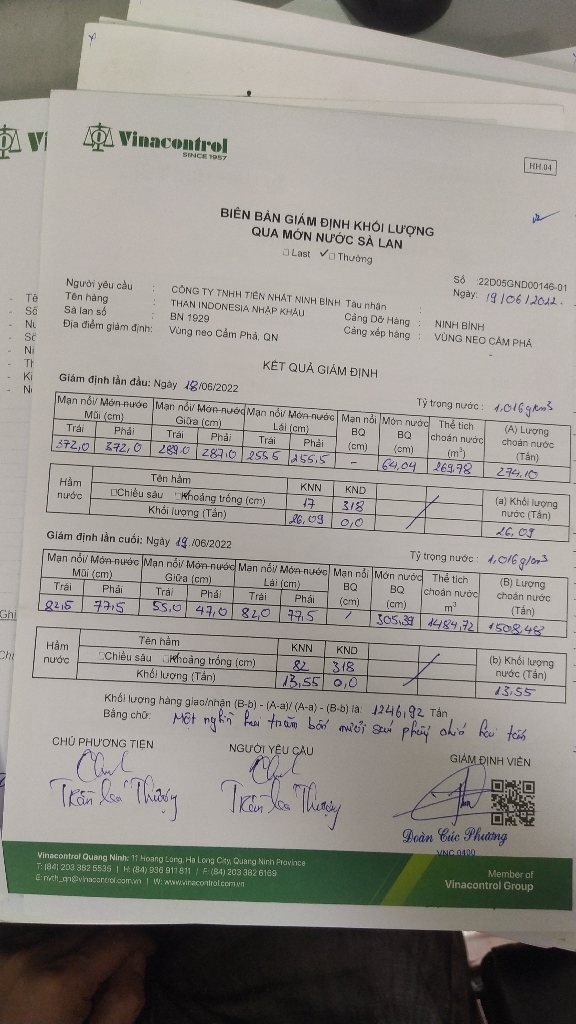 Vinacontrol
SINCE 1957
HH.04
BIÊN BẢN GIÁM ĐỊNH KHỐI LƯỢNG
QUA MỚN NƯỚC SÀ LAN
□ Last ✓□ Thường
Số :22D05GND00146-01
Ngày: 19/06/2022.
Người yêu cầu : CÔNG TY TNHH TIẾN NHẤT NINH BÌNH Tàu nhận :
Tên hàng : THAN INDONESIA NHẬP KHẨU Cảng Dỡ Hàng : NINH BÌNH
Sà lan số : BN 1929 Cảng xếp hàng : VÙNG NEO CẨM PHẢ
Địa điểm giám định: Vùng neo Cẩm Phả, QN
KẾT QUẢ GIÁM ĐỊNH
Giám định lần đầu: Ngày 18/06/2022 Tỷ trọng nước : 1,016g/cm3
Mạn nổi/ Mớn nước Mũi (cm) Mạn nổi/ Mớn nước Giữa (cm) Mạn nổi/ Mớn nước Lái (cm) Mạn nổi BQ (cm) Mớn nước BQ (cm) Thể tích choán nước (m3) (A) Lượng choán nước (Tấn)
Trái Phải Trái Phải Trái Phải
372,0 372,0 289,0 287,0 255,5 255,5 - 64,04 269,78 274,10
Hầm nước Tên hầm KNN KND (a) Khối lượng nước (Tấn)
□Chiều sâu □Khoảng trống (cm) 17 318
Khối lượng (Tấn) 26,09 0,0 26,09
Giám định lần cuối: Ngày 19./06/2022 Tỷ trọng nước : 1,016g/cm3
Mạn nổi/ Mớn nước Mũi (cm) Mạn nổi/ Mớn nước Giữa (cm) Mạn nổi/ Mớn nước Lái (cm) Mạn nổi BQ (cm) Mớn nước BQ (cm) Thể tích choán nước m3 (B) Lượng choán nước (Tấn)
Trái Phải Trái Phải Trái Phải
82,5 77,5 55,0 47,0 82,0 77,5 / 305,39 1484,72 1508,48
Hầm nước Tên hầm KNN KND (b) Khối lượng nước (Tấn)
□Chiều sâu □Khoảng trống (cm) 82 318
Khối lượng (Tấn) 13,55 0,0 13,55
Khối lượng hàng giao/nhận (B-b) - (A-a)/ (A-a) - (B-b) là: 1246,92 Tấn
Bằng chữ: Một nghìn hai trăm bốn mươi sáu phẩy chín hai tấn
CHỦ PHƯƠNG TIỆN NGƯỜI YÊU CẦU GIÁM ĐỊNH VIÊN
Đoàn Cúc Phương
VNC 0499
Vinacontrol Quang Ninh: 11 Hoang Long, Ha Long City, Quang Ninh Province
T: (84) 203 382 5535 | H: (84) 936 911 811 | F: (84) 203 382 6169
E: nvth_qn@vinacontrol.com.vn | W: www.vinacontrol.com.vn
Member of
Vinacontrol Group